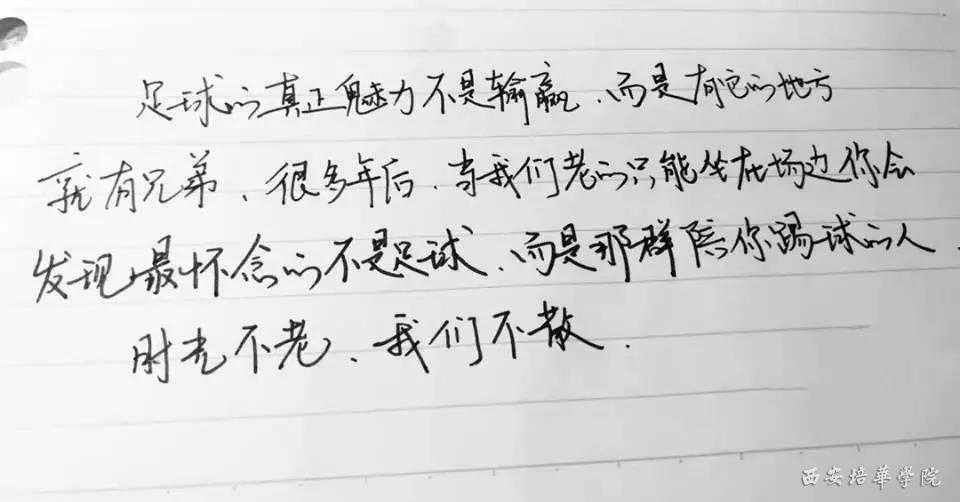 足球的真正魅力不是输赢、而是有它的地方
就有兄弟、很多年后、当我们老的只能坐在场边你会
发现最怀念的不是足球、而是那群陪你踢球的人、
时光不老、我们不散.
西安培華学院